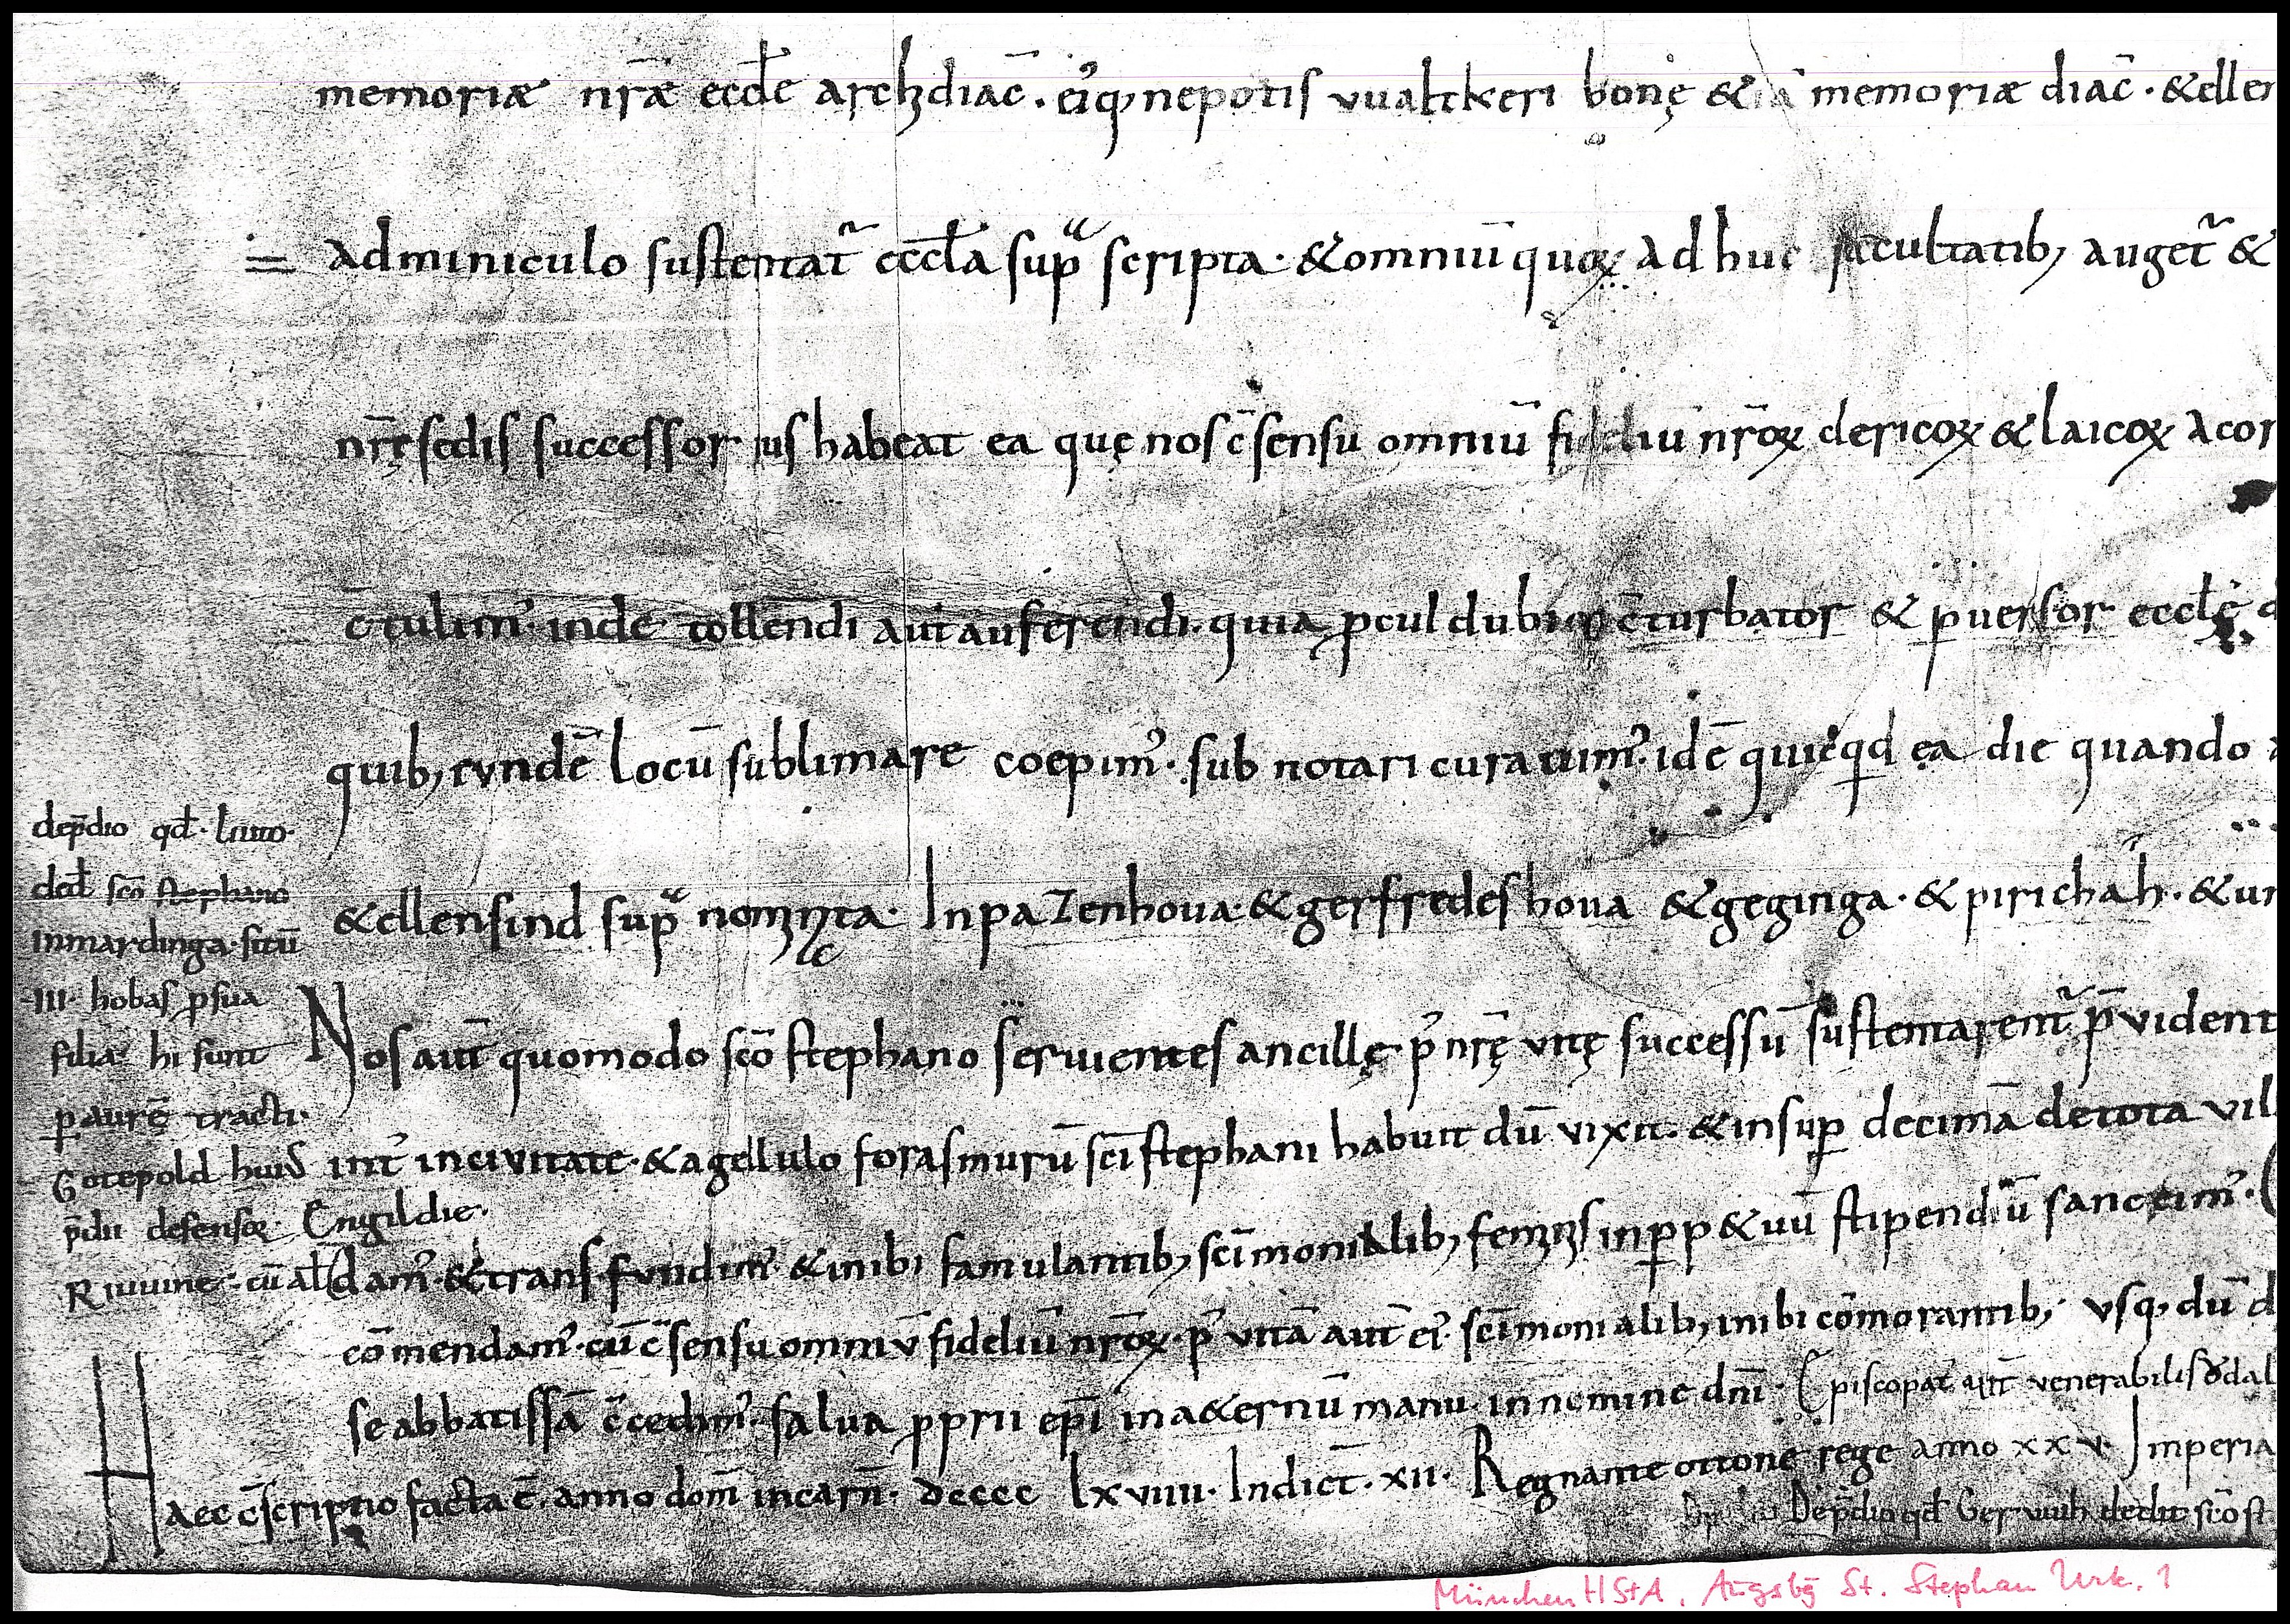 memoriæ nr̄æ eccłe archdiac̄. ei᾽q; nepotis vualtkeri bonę & memoriæ diac̄. &eller
adminiculo sustentat᷑ eccła sup̱ᵃ scripta. &omniū quoꝝ adhuc facultatib; auget᷑ &
nr̄ę sedis successor ius habeat ea quę nos c̄sensu omniū fideliū nr̄oꝝ clericoꝝ & laicoꝝ acor
c̄tulim᾽ inde tollendi aut auferendi. quia ꝓcul dubio c̄turbator & ꝑuersor eccłę
quib; eundē locū sublimare coepim᾽. sub notari curauim᾽. idē quicqd ea die quando
&ellensind sup̱ᵃ nominata. In pazenhoua. & gerfredeshoua & geginga. & pirichah. &un
Nos aut̄ quomodo sc̄o stephano seruientes ancillę p᾽ nr̄ę vitę successū sustentarent᷑ p̄vident
int᾽ in civitate. & agellulo foras murū sc̄i stephani habuit dū vixit. & insuꝑ decimā de tota vil
dam᾽. & transfundim᾽ & inibi famulantib; sc̄imonialib; feminis in ꝑp&uū stipendiū sanccim᾽.
com̄endam᾽. cū c̄sensu omniū fideliū nr̄oꝝ. p᾽ vitā aut̄ ei᾽ sc̄imonialib; inibi com̄orantib; vsq; dū d
se abbatissā c̄cedim᾽. salua ꝓprii ep̄i in a&ernū manu. in nomine dn̄i. Episcopat᾽ aut̄ venerabilis ǒdal
Haec c̄scriptio facta ē. anno dom̄ incarn̄. dcccc lxviiii. Indict̄. xii. Regnante ottone rege anno xxv. Imperia
Dep̄dio qđ Ger vuih dedit sc̄o st
dep̄dio qđ. liuto.
deđ sc̄o stephano
in mardinga. sitū
.III. hobas ꝑ sua
filia. hi sunt
ꝑ aurē tracti.
Gotepold hui᾽
p̄dii defensoꝝ. Engildie.
Riuuine. cū ał
München HStA, Augsbg St. Stephan Urk. 1